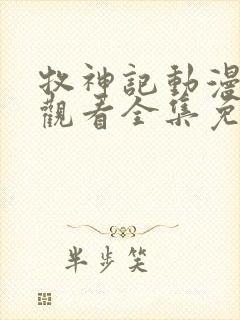 牧神記動漫
觀看全集免
半步笑